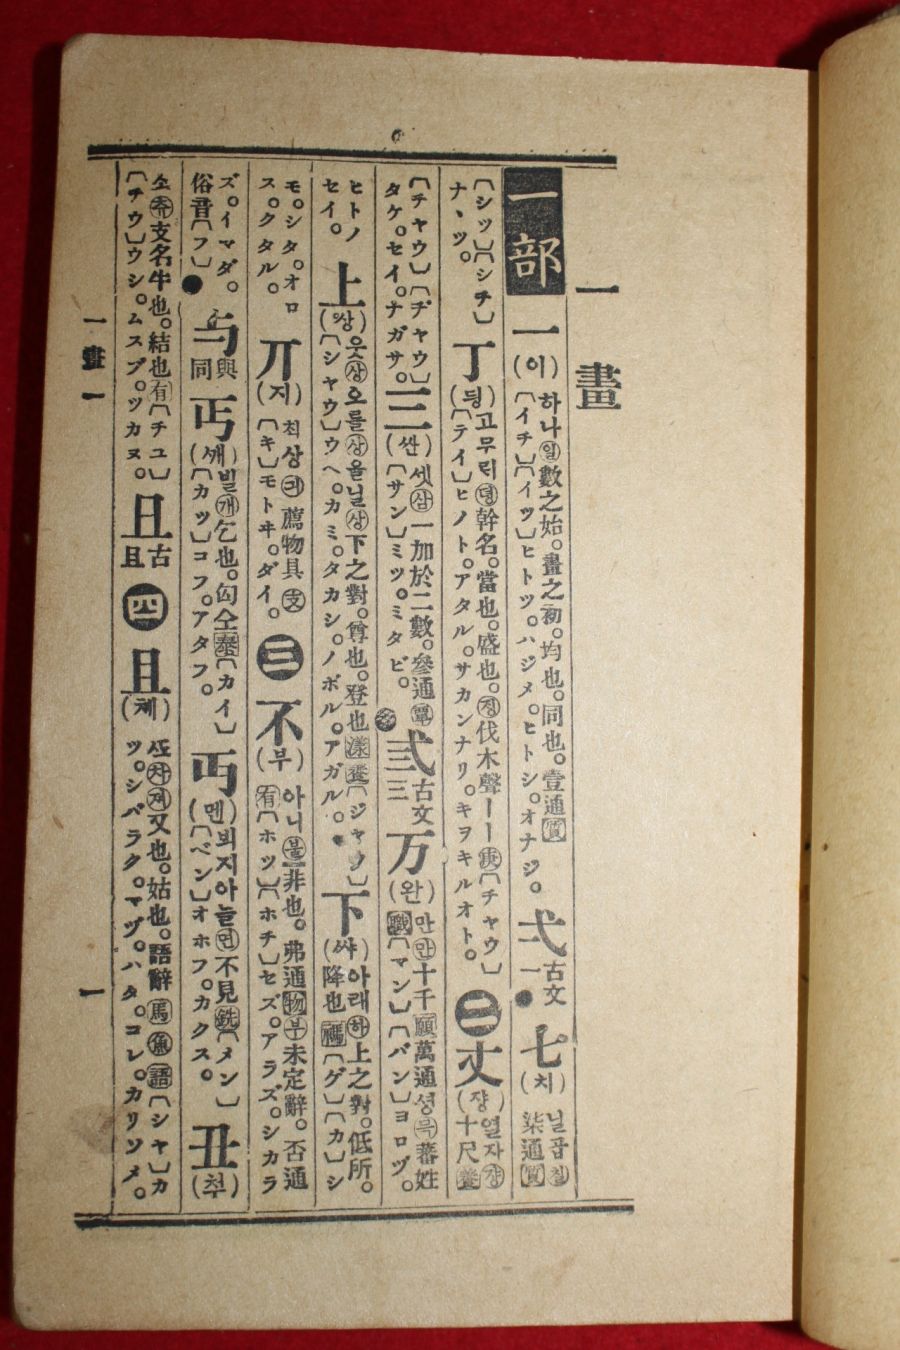 一畫
一部 一(이)하나㊀數之始。畫之初。均也。同也。壹通質〔イチ〕〔イツ〕ヒトツ。ハジメ。ヒトシ。オナジ。弌古文一●七(치)닐곱칠柒通質
〔シツ〕〔シチ〕ナヽツ。丁(뎡)고무릭뎡幹名。當也。盛也。졍伐木聲——庚〔チャウ〕〔テイ〕ヒノト。アタル。サカンナリ。キヲキルオト。㊁丈(쟝)열자쟝十尺養
〔チャウ〕〔ヂャウ〕タケ。セイ。ナガサ。三(싼)셋삼一加於二數。參通覃〔サン〕ミツ。ミタビ。弎古文三万(완)만만十千願萬通셩믁蕃姓職〔マン〕〔バン〕ヨロヅ。
ヒトノセイ。上(쌍)웃상오를상올닐상下之對。尊也。登也漾養〔ジャウ〕〔シャウ〕ウヘ。カミ。タカシ。ノボル。アガル。●下(쌰)아래하上之對。低所。降也禡〔ゲ〕〔カ〕シ
モ。シタ。オロス。クダル。丌(지)최상긔薦物具支〔キ〕モトヰ。ダイ。㊂不(부)아니불非也。弗通物부未定辭。否通有〔ホツ〕〔ホチ〕セズ。アラズ。シカラ
ズ。イマダ。俗音〔フ〕●与與同丐(깨)빌개乞也。匃仝泰〔カイ〕〔カツ〕コフ。アタフ。丏(멘)븨지아늘면不見銑〔メン〕〔ベン〕オホフ。カクス。丑(척)
소츅支名牛也。結也有〔チユ〕〔チウ〕ウシ。ムスブ。ツカヌ。𠀇古且㊃且(쳬)쏘차져又也。姑也。語辭馬魚語〔シャ〕カツ。シバラク。マヅ。ハタ。コレ。カリソメ。
一畫 一
一